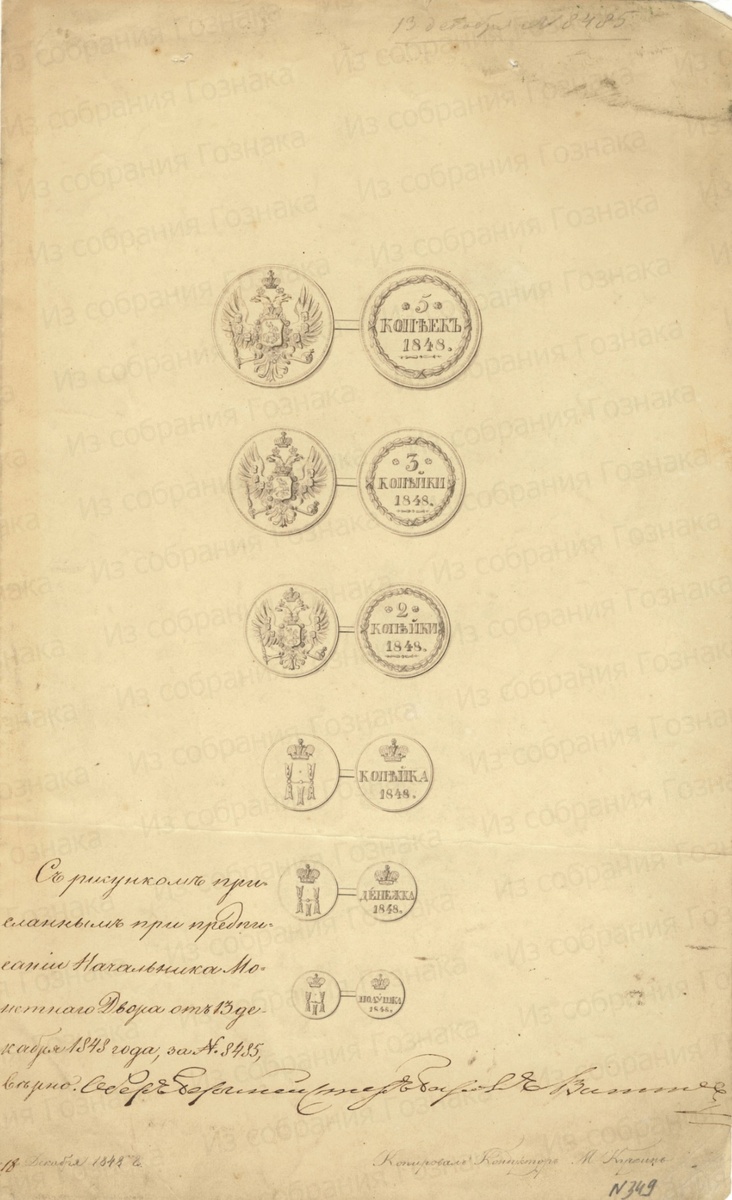 13 декабря № 8485
5
КОПѢЕКЪ
1848.
3
КОПѢЙКИ
1848.
2
КОПѢЙКИ
1848.
КОПѢЙКА
1848.
ДЕНЕЖКА
1848.
ПОЛУШКА
1848.
Съ рисункомъ при-
сланнымъ при предпи-
саніи Начальника Мо-
нетнаго Двора отъ 13 де-
кабря 1848 года, за № 8485,
вѣрно.
18 Декабря 1848 г.
Копировалъ
N 349
Из собрания Гознака